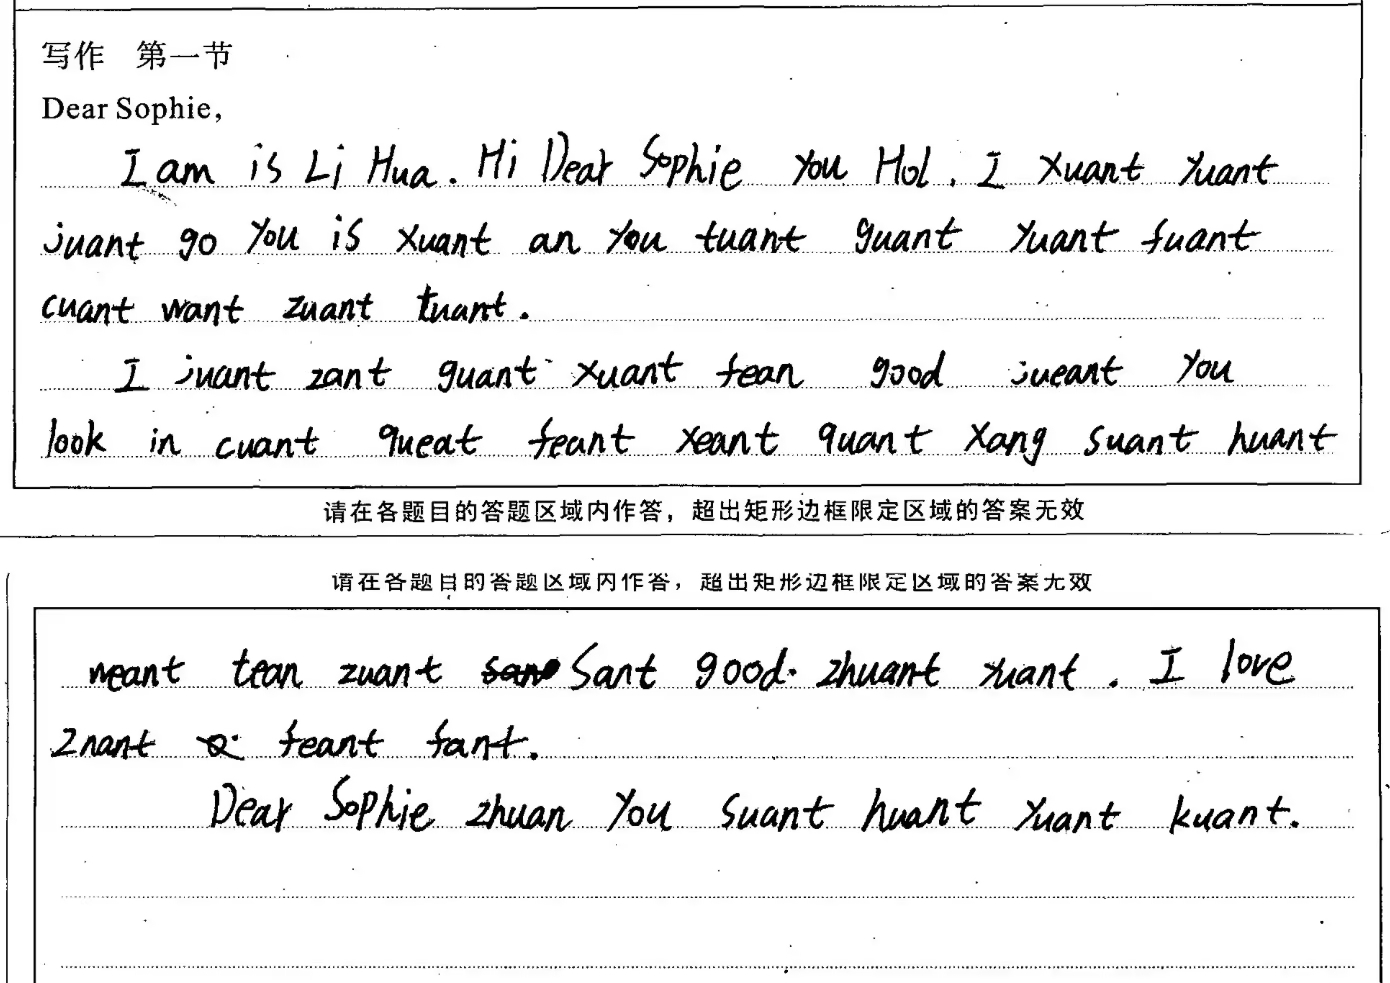 写作 第一节
Dear Sophie,
I am is Li Hua. Hi Dear Sophie you Hol. I xuant yuant
juant go you is xuant an you tuant guant yuant fuant
cuant want zuant tuant.
I juant zant guant xuant fean good jueant you
look in cuant queat feant xeant quant xang suant huant
请在各题目的答题区域内作答，超出矩形边框限定区域的答案无效
请在各题目的答题区域内作答，超出矩形边框限定区域的答案无效
neant tean zuant Sant good. zhuant xuant. I love
feant fant.
Dear Sophie zhuan you suant huant xuant kuant.